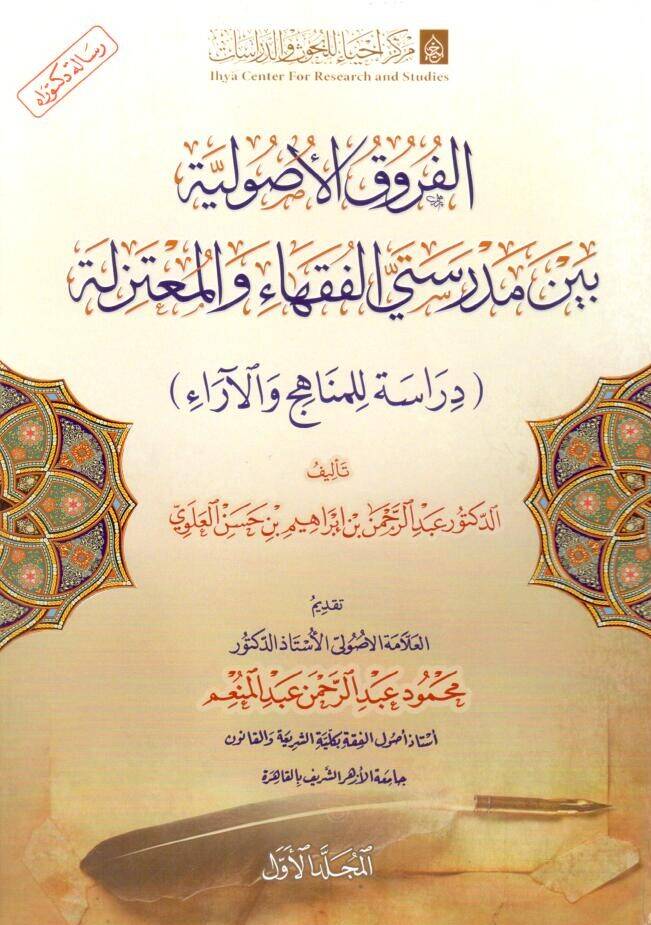 مركز إحياء للبحوث والدراسات
Ihyā Center For Research and Studies
رسالة دكتوراه
الفُرُوقُ الأُصُولِيَّة
بَيْنَ مَدْرَسَتَيِ الفُقَهَاءِ وَالمُعْتَزِلَة
(دِرَاسَة لِلمَنَاهِجِ وَالآرَاءِ)
تَأليفُ
الدّكتُور عَبْدِ الرَّحْمَنِ بْنِ إبْرَاهِيمِ بْنِ حَسَن العَلَوِيّ
تقديمُ
العَلّامَة الأصُوليّ الأُسْتَاذ الدّكتُور
مَحْمُود عَبْدِ الرَّحْمَن عَبْدِ المُنْعِم
أستاذ أصُول الفِقهِ بكليَّةِ الشّريعَة وَالقانُون
جَامعَة الأزهَر الشّريف بِالقاهِرَة
المُجَلَّد الأَوَّل